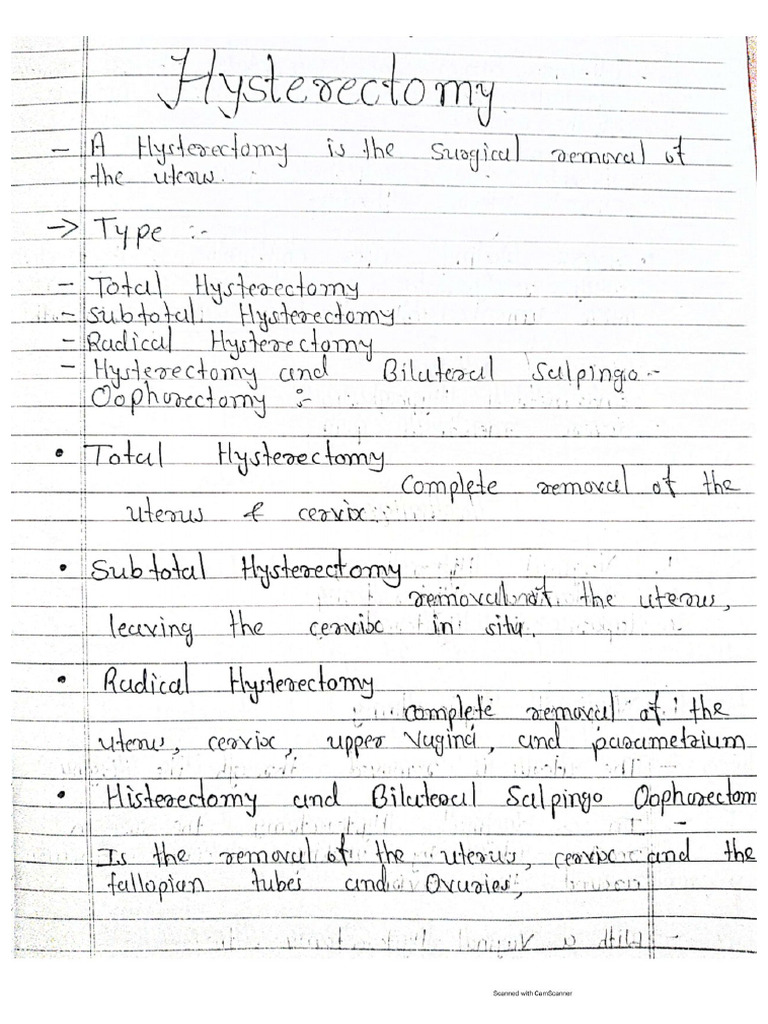 Hysterectomy
- A Hysterectomy is the Surgical removal of
the uterus.
→ Type :-
- Total Hysterectomy
- Subtotal Hysterectomy
- Radical Hysterectomy
- Hysterectomy and Bilateral Salpingo-
Oophorectomy :-
• Total Hysterectomy
Complete removal of the
uterus & cervix.
• Subtotal Hysterectomy
removal of the uterus,
leaving the cervix in situ.
• Radical Hysterectomy
complete removal of the
uterus, cervix, upper Vagina, and parametrium
• Histerectomy and Bilateral Salpingo Oophorectom
-
Is the removal of the uterus, cervix and the
fallopian tubes and Ovaries,
Scanned with CamScanner